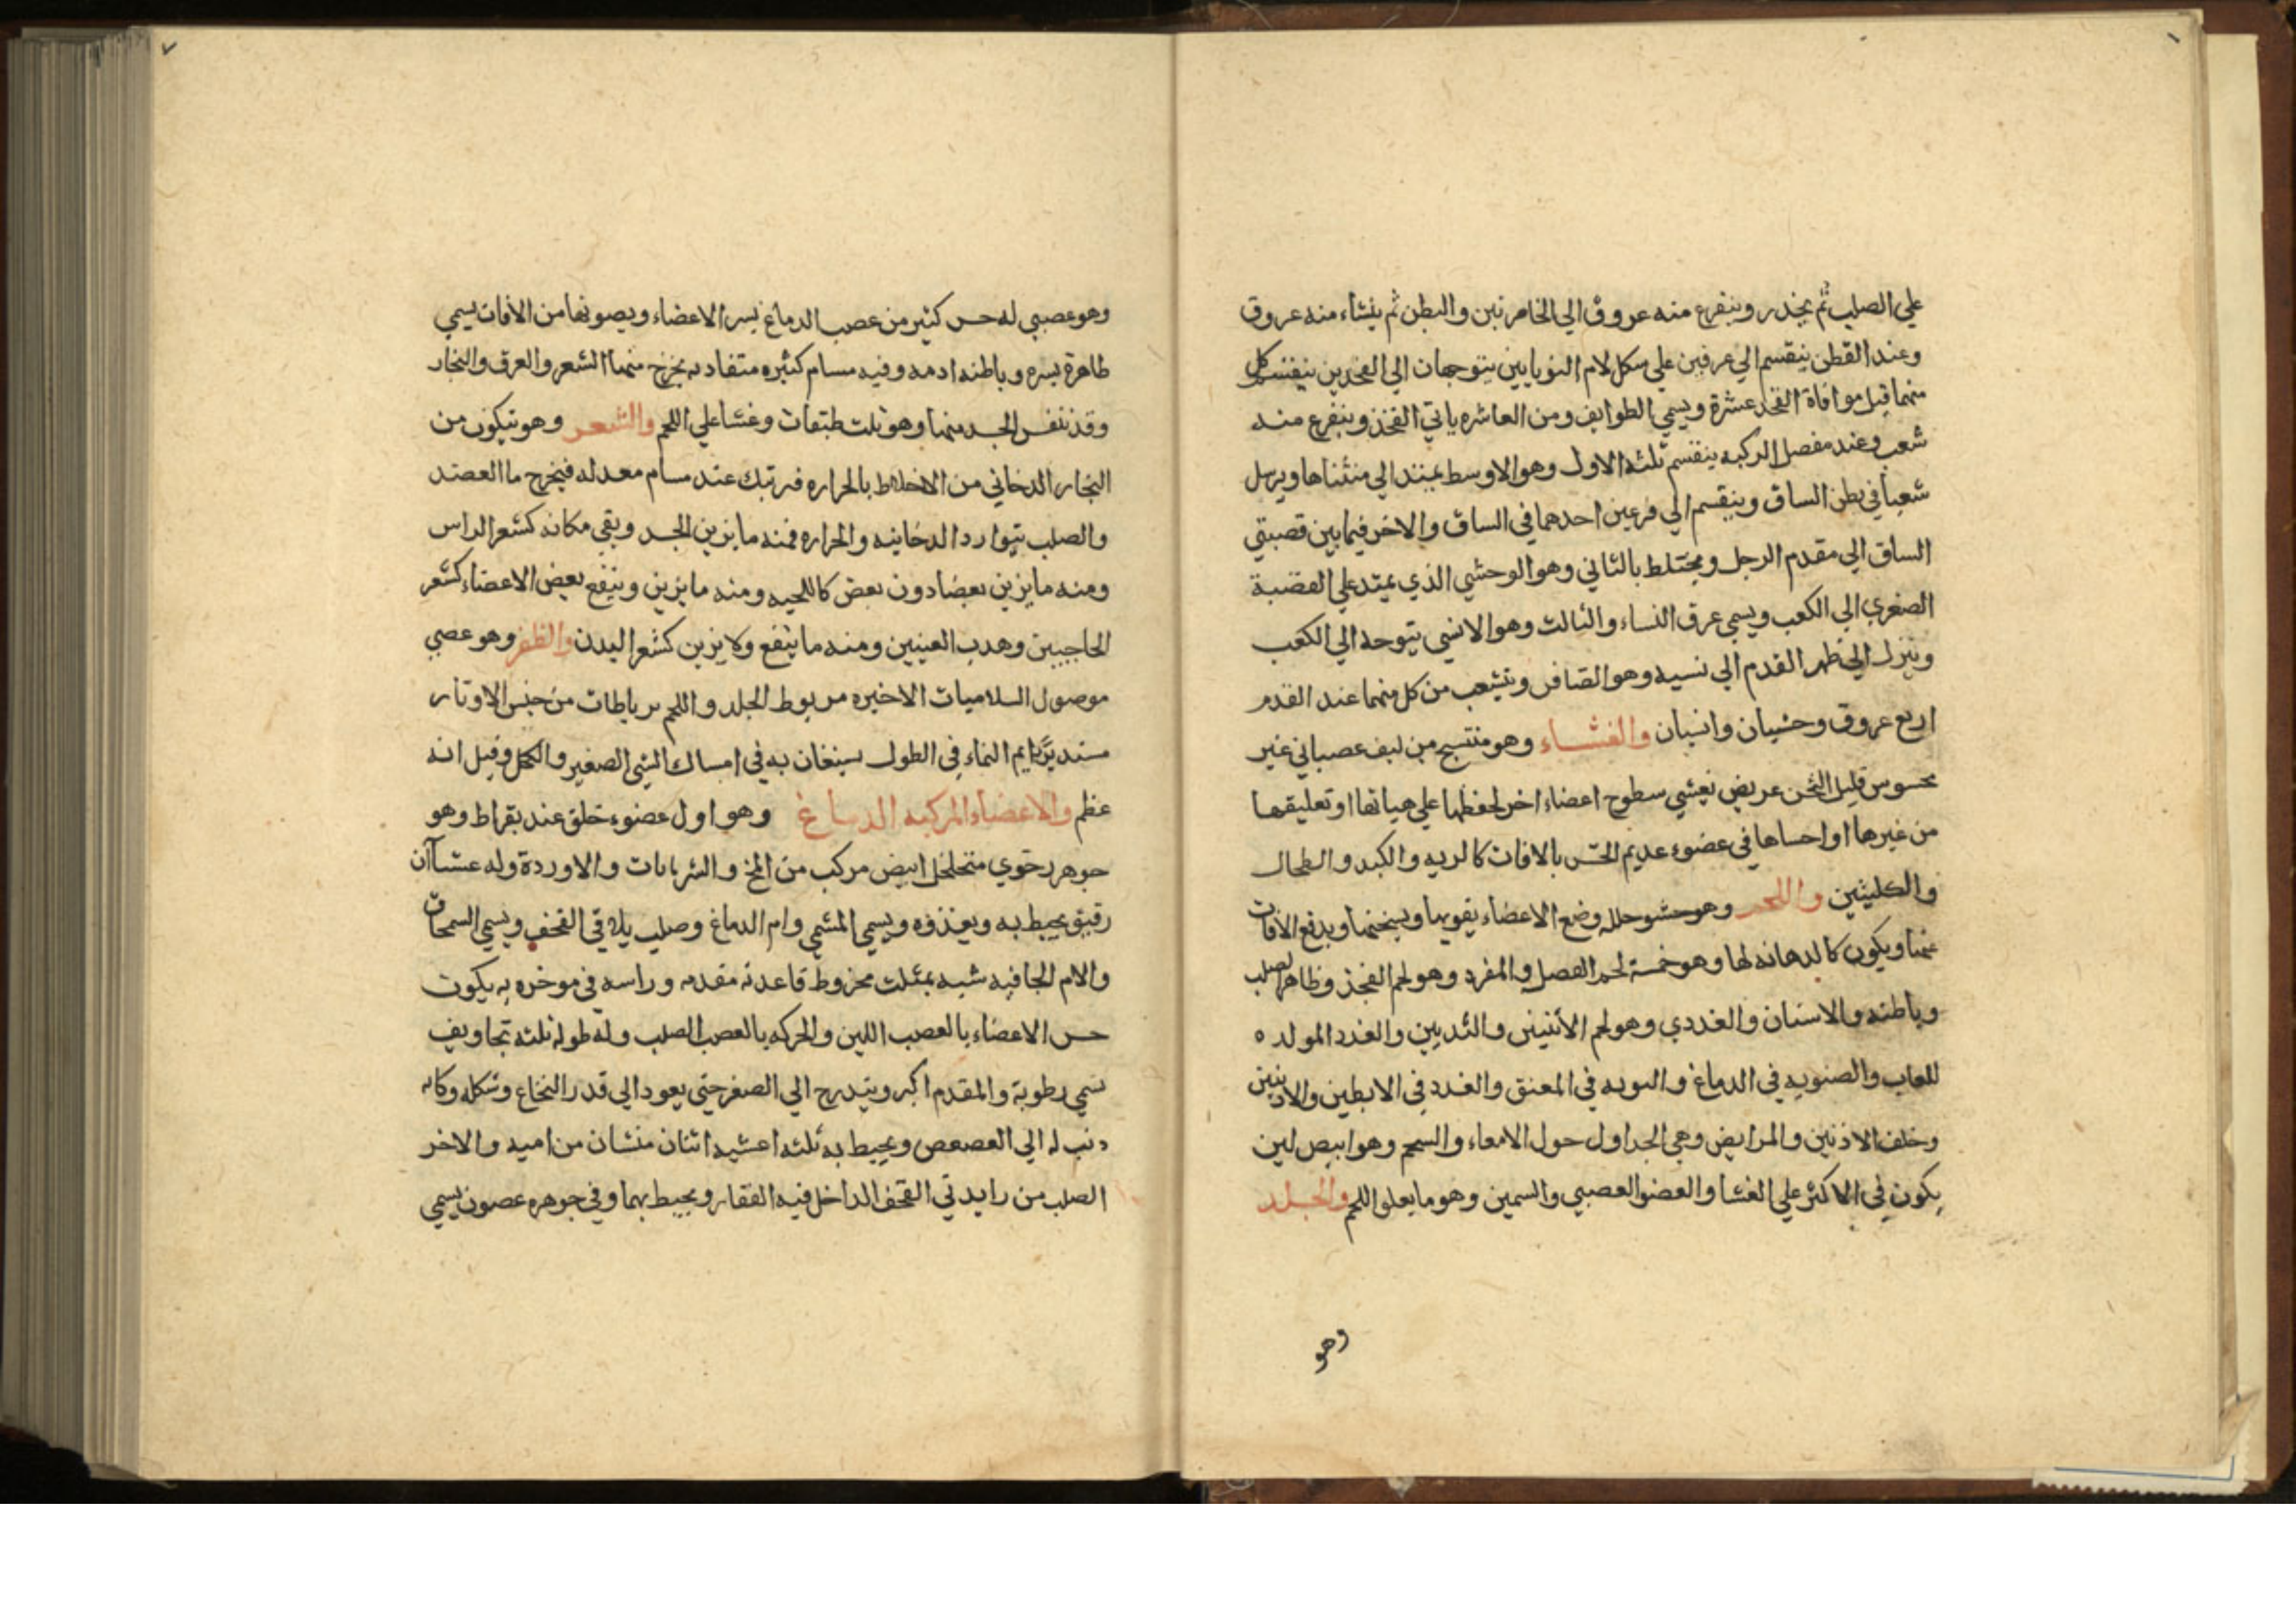 علي الصلب ثم ينحدر ويتفرع منه عروق الي الخاصرتين والبطن ثم ينشاء منه عروق
وعند القطن ينقسم الي عرقين علي شكل لام اليونانيين يتوجهان الي الفخدين ينقسم كل
منهما قبل موافاة الفخد عشرة ويسمي الطوايف ومن العاشره ياتي الفخذ ويتفرع منه
شعب وعند مفصل الركبه ينقسم ثلثه الاول وهو الاوسط يمتد الي منثناها ويرسل
شعبا في بطن الساق وينقسم الي فرعين احدهما في الساق والاخر فيما بين قصبتي
الساق الي مقدم الرجل ويختلط بالثاني وهو الوحشي الذي يمتد علي القصبة
الصغري الي الكعب ويسمي عرق النساء والثالث وهو الانسي يتوجه الي الكعب
وينزل الي ظهر القدم الي نسيه وهو الصافن وينشعب من كل منهما عند القدم
اربع عروق وحشيان وانسيان والغشاء وهو منتسج من ليف عصباني غير
محسوس قليل الثخن عريض يغشي سطوح اعضاء اخر لحفظها علي هياتها او تعليقها
من غيرها او احساها في عضوء عديم الحس بالافات كالريه والكبد والطحال
والكليتين واللحم وهو حشو خلله وضع الاعضاء يقويها ويسخنها ويدفع الافات
عنها ويكون كالدهانه لها وهو خمسة لحم الفصل والمفرد وهو لحم الفخذ وظاهر الصلب
وباطنه والاسنان والغددي وهو لحم الانثيين والثديين والغدد المولده
للعاب والصنوبه في الدماغ و في المعنق والغدد في الابطين والاربيتين
وخلف الاذنين والمرابض وهي الجداول حول الامعاء والسحم وهو ابيض لين
يكون في الاكثر علي الغشا والعضو العصبي والسمين وهو ما يعلو اللحم والجلد
وهو
وهو عصبي له حس كثير من عصب الدماغ يسر الاعضاء ويصونها من الافات يسمي
ظاهرة بسره وباطنه ادمه وفيه مسام كثيره متفاد به يخرج منها الشعر والعرق والبخار
وقد تنفس الجسد منها وهو ثلث طبقات وغشا علي اللحم والشعر وهو يتكون من
البخار الدخاني من الاخلاط بالحراره فيرتبك عند مسام معدله فيخرج ما العصند
والصلب بتوارد الدخانيه والحراره فمنه ما يزين الجسد وبقي مكانه كشعر الراس
ومنه ما يزين بعضا دون بعض كاللحيه ومنه ما يزين وينفع بعض الاعضاء كشعر
الحاجبين وهدب العينين ومنه ما ينفع ولا يزين كشعر البدن والظفر وهو عصبي
موصول السلاميات الاخيره مربوط الجلد واللحم برباطات من جنس الاوتار
مستدير دايم النماء في الطول يستعان به في امساك الشي الصغير والكحل وقيل انه
عظم والاعضاء المركبه الدماغ وهو اول عضوء خلق عند بقراط وهو
جوهر رخوي متخلخل ابيض مركب من المخ والشريانات والاوردة وله غشاآن
رقيق يحيط به ويغذوه ويسمي المشمي وام الدماغ وصلب يلاقي القحف ويسمي السمحاق
والام الجافيه شبه بمثلث مخروط قاعدته مقدمه وراسه في موخره به يكون
حس الاعضاء بالعصب اللين والحركه بالعصب الصلب وله طوله ثلثه تجاويف
تسمي رطوبة والمقدم اكبر ويتدرج الي الصغر حتي يعود الي قدر النخاع وشكله وكانه
دنب له الي العصعص ويحيط به ثلثه اغشيه اثنان منشان من اميه والاخر
الصلب من زايدتي القحف الداخل فيه الفقار ويحيط بهما وفي جوهره غصون يسمي